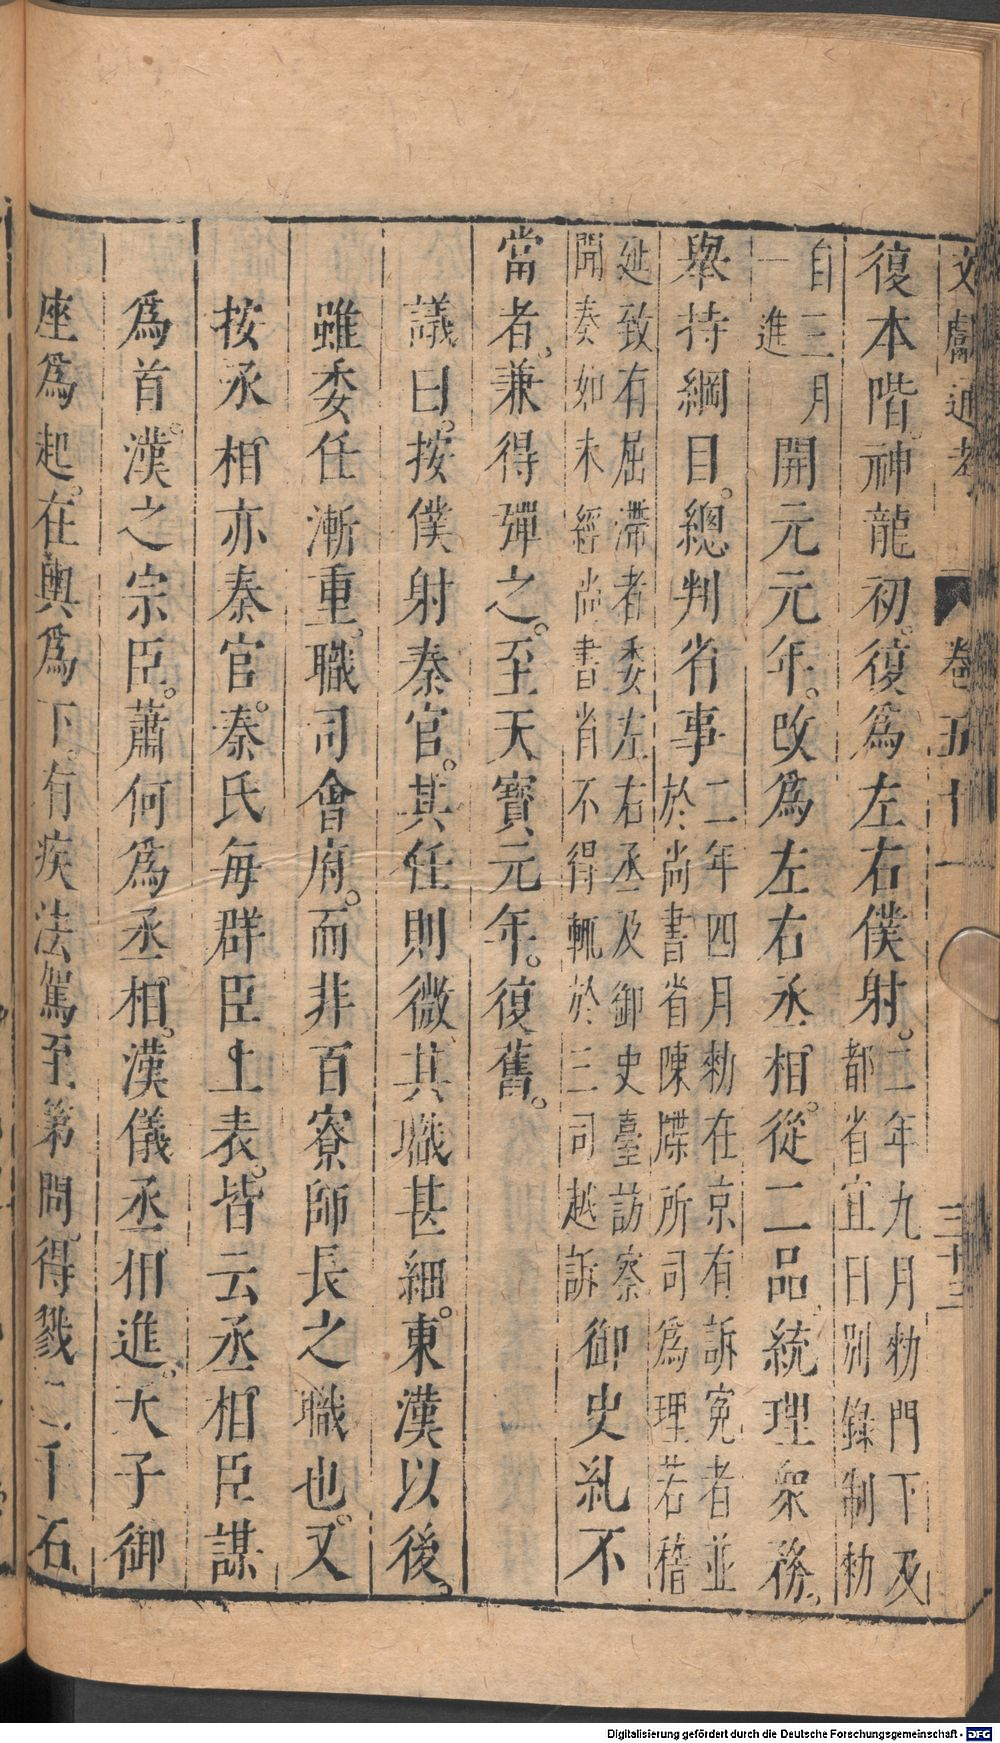 文獻通考 卷五十一 三十三
復本階。神龍初。復爲左右僕射。二年九月勑門下及都省宜日別錄制勑
自三月一進開元元年。改爲左右丞相。從二品。統理衆務。
舉持綱目。總判省事二年四月勑在京有訴冤者並於尚書省陳牒所司爲理若稽
延致有屈滯者委左右丞及御史臺訪察聞奏如未經尚書省不得輒於三司越訴御史糺不
當者。兼得彈之。至天寶元年。復舊。
議曰。按僕射秦官。其任則微、其職甚細。東漢以後。
雖委任漸重。職司會府。而非百寮師長之職也。又
按丞相亦秦官。秦氏每群臣上表。皆云丞相臣謀
爲首。漢之宗臣。蕭何爲丞相。漢儀丞相進。天子御
座爲起。在輿爲下。有疾法駕至第問。得戮二千石
Digitalisierung gefördert durch die Deutsche Forschungsgemeinschaft - DFG